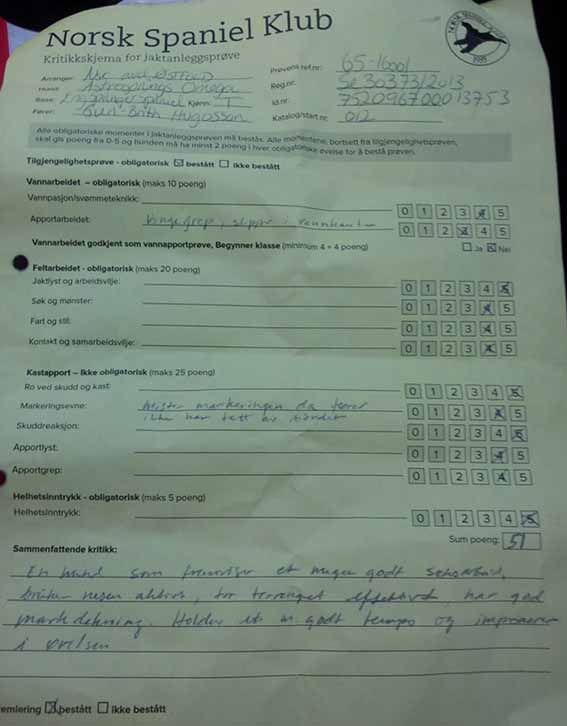 Norsk Spaniel Klub
NORSK SPANIEL KLUB
1985
Kritikkskjema for jaktanleggsprøve
Prøvens ref.nr: 65-16001
Arrangør: NSK avd, østfold
Reg.nr: Se30373/2013
Hund: Astrosprings Omega
Id.nr: 752096700013753
Rase: Eng springer spaniel Kjønn: T
Katalog/start nr: 012
Fører: Gun-Brith Hugosson
Alle obligatoriske momenter i jaktanleggsprøven må bestås. Alle momentene, bortsett fra tilgjengelighetsprøven,
skal gis poeng fra 0-5 og hunden må ha minst 2 poeng i hver obligatoriske øvelse for å bestå prøven.
Tilgjengelighetsprøve - obligatorisk bestått ikke bestått
Vannarbeidet – obligatorisk (maks 10 poeng)
Vannpasjon/svømmeteknikk: 0 1 2 3 4 5
Apportarbeidet: Vingegrep, slipper i vannkanten 0 1 2 3 4 5
Vannarbeidet godkjent som vannapportprøve, Begynner klasse (minimum 4 + 4 poeng) Ja Nei
Feltarbeidet - obligatorisk (maks 20 poeng)
Jaktlyst og arbeidsvilje: 0 1 2 3 4 5
Søk og mønster: 0 1 2 3 4 5
Fart og stil: 0 1 2 3 4 5
Kontakt og samarbeidsvilje: 0 1 2 3 4 5
Kastapport – Ikke obligatorisk (maks 25 poeng)
Ro ved skudd og kast: 0 1 2 3 4 5
Markeringsevne: mister markeringen da fører 0 1 2 3 4 5
ikke har tatt av båndet
Skuddreaksjon: 0 1 2 3 4 5
Apportlyst: 0 1 2 3 4 5
Apportgrep: 0 1 2 3 4 5
Helhetsinntrykk - obligatorisk (maks 5 poeng)
Helhetsinntrykk: 0 1 2 3 4 5
Sum poeng: 51
Sammenfattende kritikk:
En hund som fremviser et meget godt søksarbeid,
bruker nesen aktivt, tar terrenget effektivt, har god
markdekning. Holder et m. godt tempo og imponerer
i øvelsen
emiering bestått ikke bestått